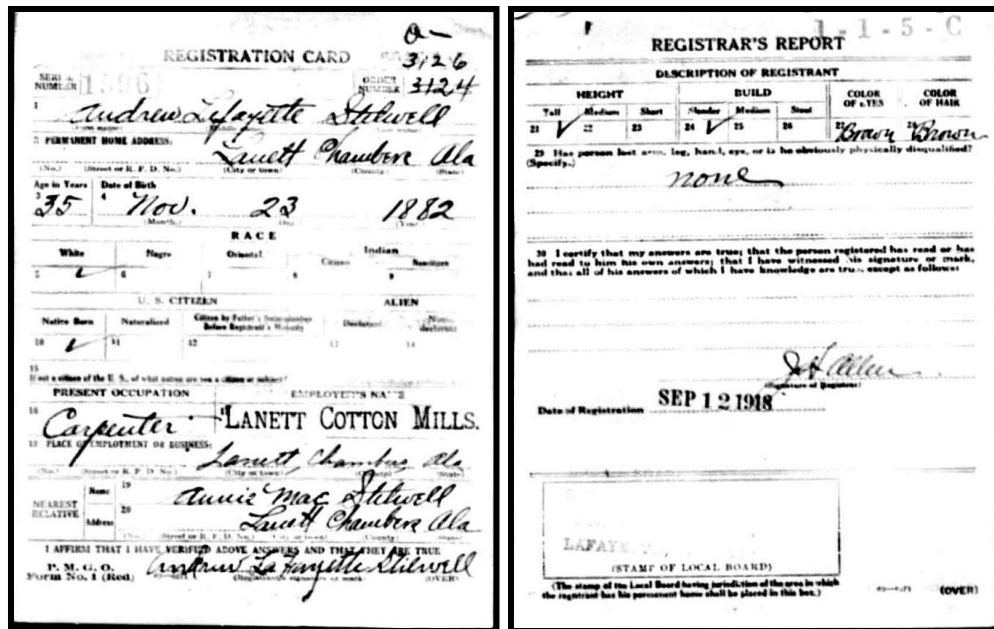 a-
REGISTRATION CARD 3126
SERIAL NUMBER 1596 ORDER NUMBER 3124
1 Andrew Lafayette Stilwell
2 PERMANENT HOME ADDRESS:
Lanett Chambers Ala
(No.) (Street or R. F. D. No.) (City or town) (County) (State)
Age in Years Date of Birth
3 35 4 Nov. 23 1882
(Month.) (Day.) (Year.)
RACE
White Negro Oriental Indian
Citizen Noncitizen
5 ✓ 6 7 8 9
U. S. CITIZEN ALIEN
Native Born Naturalized Citizen by Father's Naturalization Before Registrant's Majority Declarant Non-declarant
10 ✓ 11 12 13 14
15
If not a citizen of the U. S., of what nation are you a citizen or subject?
PRESENT OCCUPATION EMPLOYER'S NAME
16 Carpenter 17 LANETT COTTON MILLS.
18 PLACE OF EMPLOYMENT OR BUSINESS:
Lanett, Chambers Ala
(No.) (Street or R. F. D. No.) (City or town) (County) (State)
NEAREST RELATIVE Name 19 Annie Mae Stilwell
Address 20 Lanett Chambers Ala
(No.) (Street or R. F. D. No.) (City or town) (County) (State)
I AFFIRM THAT I HAVE VERIFIED ABOVE ANSWERS AND THAT THEY ARE TRUE
P. M. G. O.
Form No. 1 (Red) Andrew LaFayette Stilwell
(Registrant's signature or mark) (OVER)
1-1-5-C
REGISTRAR'S REPORT
DESCRIPTION OF REGISTRANT
HEIGHT BUILD COLOR OF EYES COLOR OF HAIR
Tall Medium Short Slender Medium Stout
21 ✓ 22 23 24 ✓ 25 26 27 Brown 28 Brown
29 Has person lost arm, leg, hand, eye, or is he obviously physically disqualified?
(Specify.)
none
30 I certify that my answers are true; that the person registered has read or has
had read to him his own answers; that I have witnessed his signature or mark,
and that all of his answers of which I have knowledge are true, except as follows:
J H Allen
(Signature of Registrar)
Date of Registration SEP 12 1918
LAFAYE
(STAMP OF LOCAL BOARD)
(The stamp of the Local Board having jurisdiction of the area in which
the registrant has his permanent home shall be placed in this box.)
(OVER)